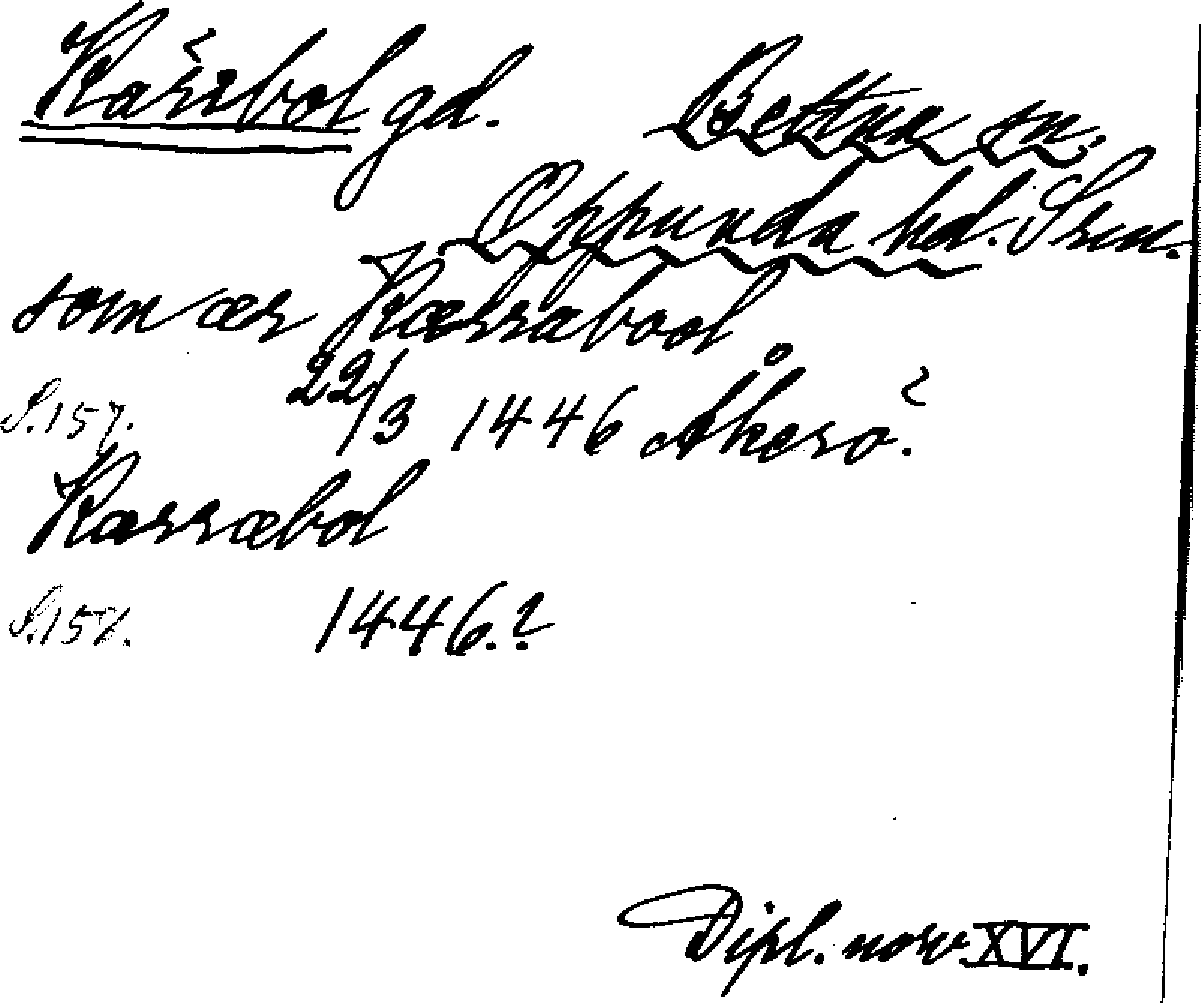 Kärrbol gd. Bettna sn.
Oppunda hd. Srm.
som ær Kærrabool
S. 157. 22/3 1446 Åkerö?
Karræbol
S. 157. 1446.?
Dipl. norv. XVI.